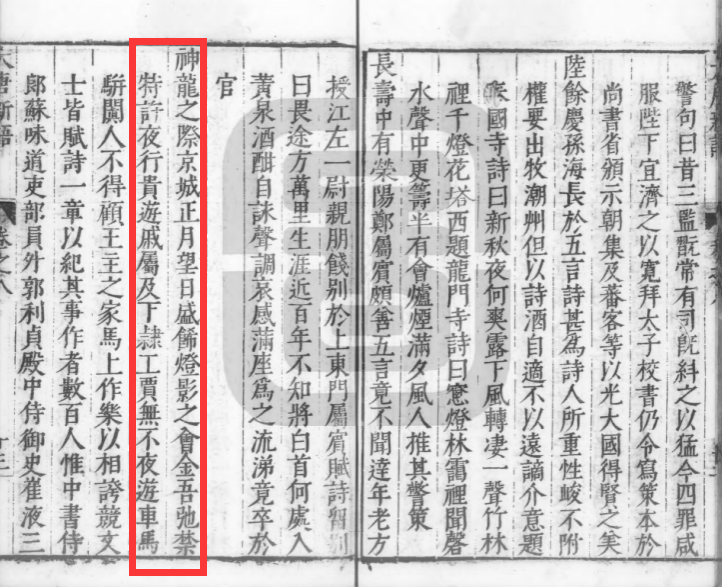 警句曰昔三監翫常有司旣糾之以猛今四罪咸
服陛下宜濟之以寬拜太子校書仍令寫策本於
尚書省頒示朝集及蕃客等以光大國得賢之美
陸餘慶孫海長於五言詩甚爲詩人所重性峻不附
權要出牧潮州但以詩酒自適不以遠謫介意題
國寺詩曰新秋夜何爽露下風轉凄一聲竹林
裡千燈花塔西題龍門寺詩曰窻燈林靄裡聞磬
水聲中更籌半有會爐煙滿夕風人推其警策
長壽中有滎陽鄭屬賓頗善五言竟不聞達年老方
授江左一尉親朋餞别於上東門屬賓賦詩留别
曰畏途方萬里生涯近百年不知將白首何處入
黃泉酒酣自詠聲調哀感滿座爲之流涕竟卒於
官
神龍之際京城正月望日盛飾燈影之會金吾弛禁
特許夜行貴遊戚屬及下隷工賈無不夜遊車馬
駢闐人不得顧王主之家馬上作樂以相誇競文
士皆賦詩一章以紀其事作者數百人惟中書侍
郎蘇味道吏部員外郭利貞殿中侍御史崔液三